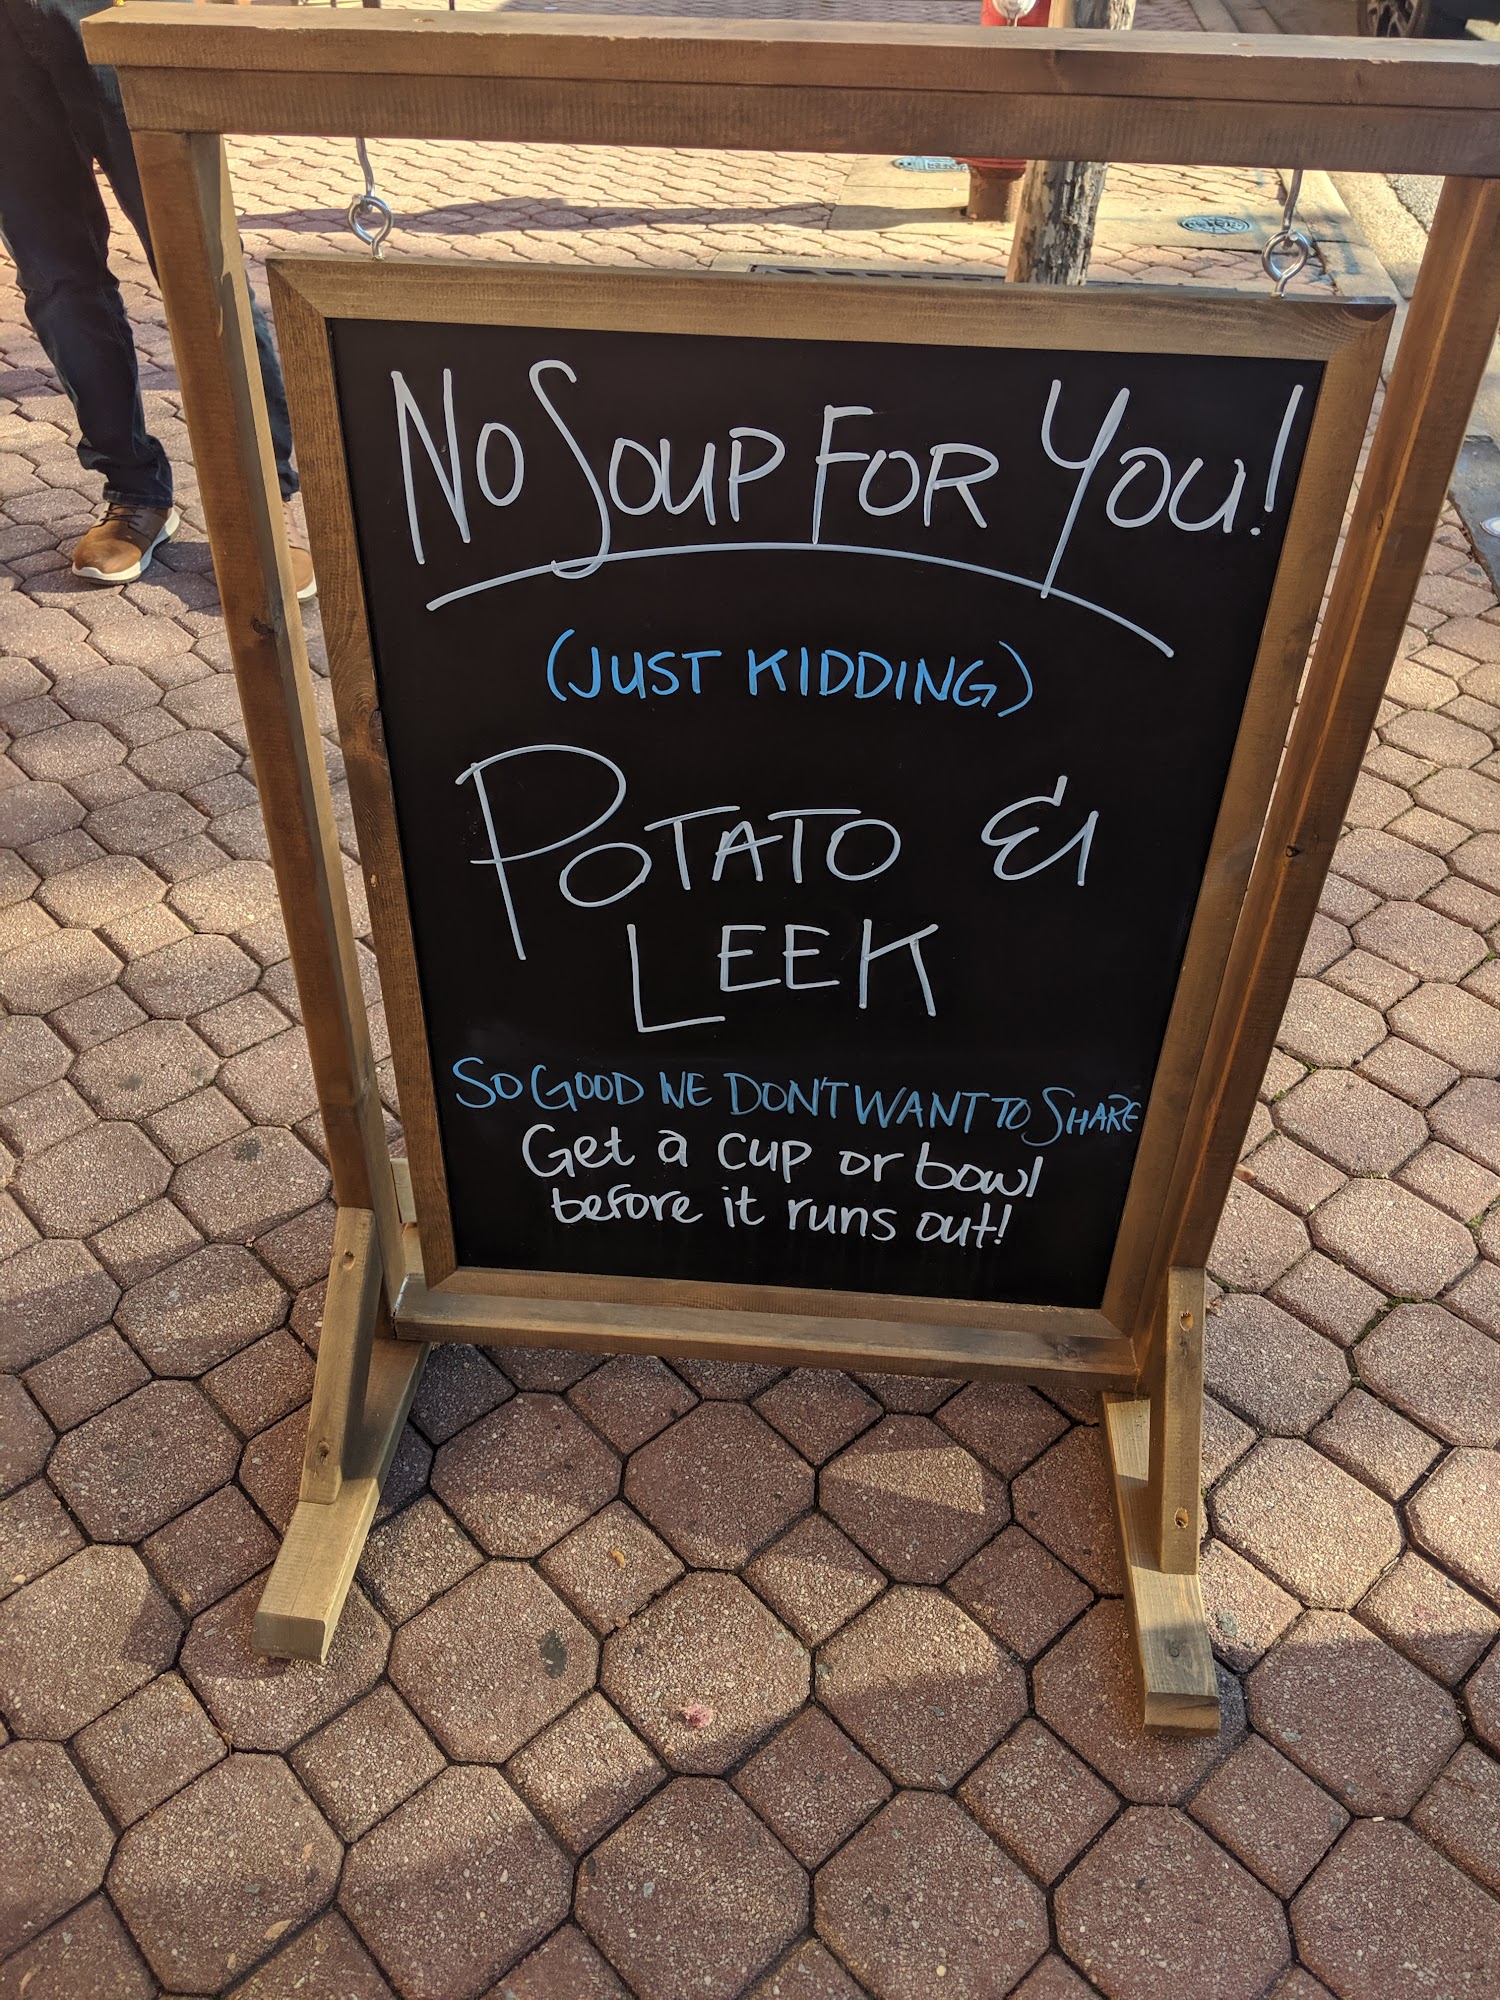 No Soup For You!
(JUST KIDDING)
POTATO &
LEEK
SO GOOD WE DON'T WANT TO SHARE
Get a cup or bowl
before it runs out!